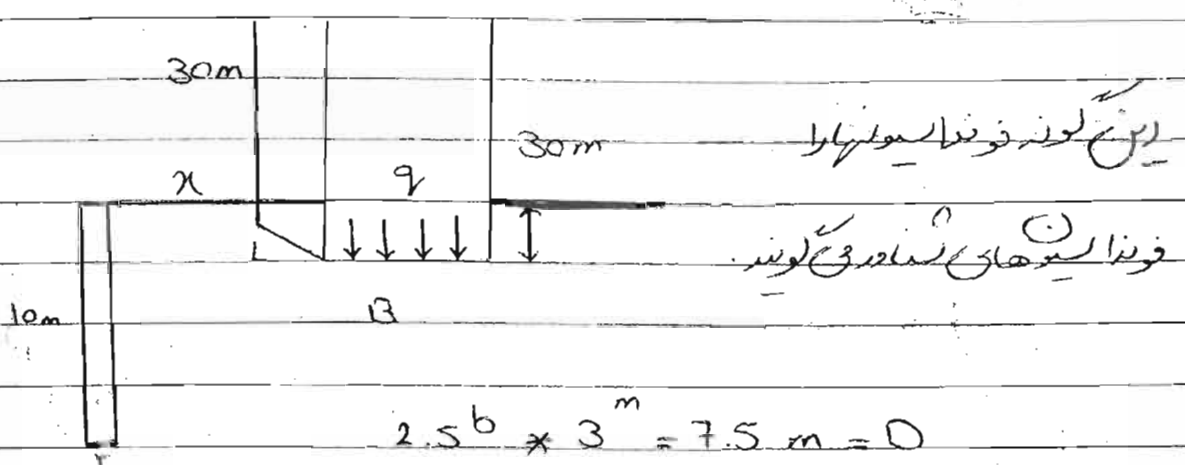 30m
این گونه فونداسیونها را
30m
x
q
فونداسیون های شناور می گویند.
10m
B
2.5b * 3m = 7.5 m = D